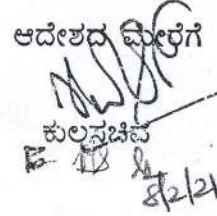 ಆದೇಶದ ಮೇರೆಗೆ
ಕುಲಸಚಿವ
8/2/21